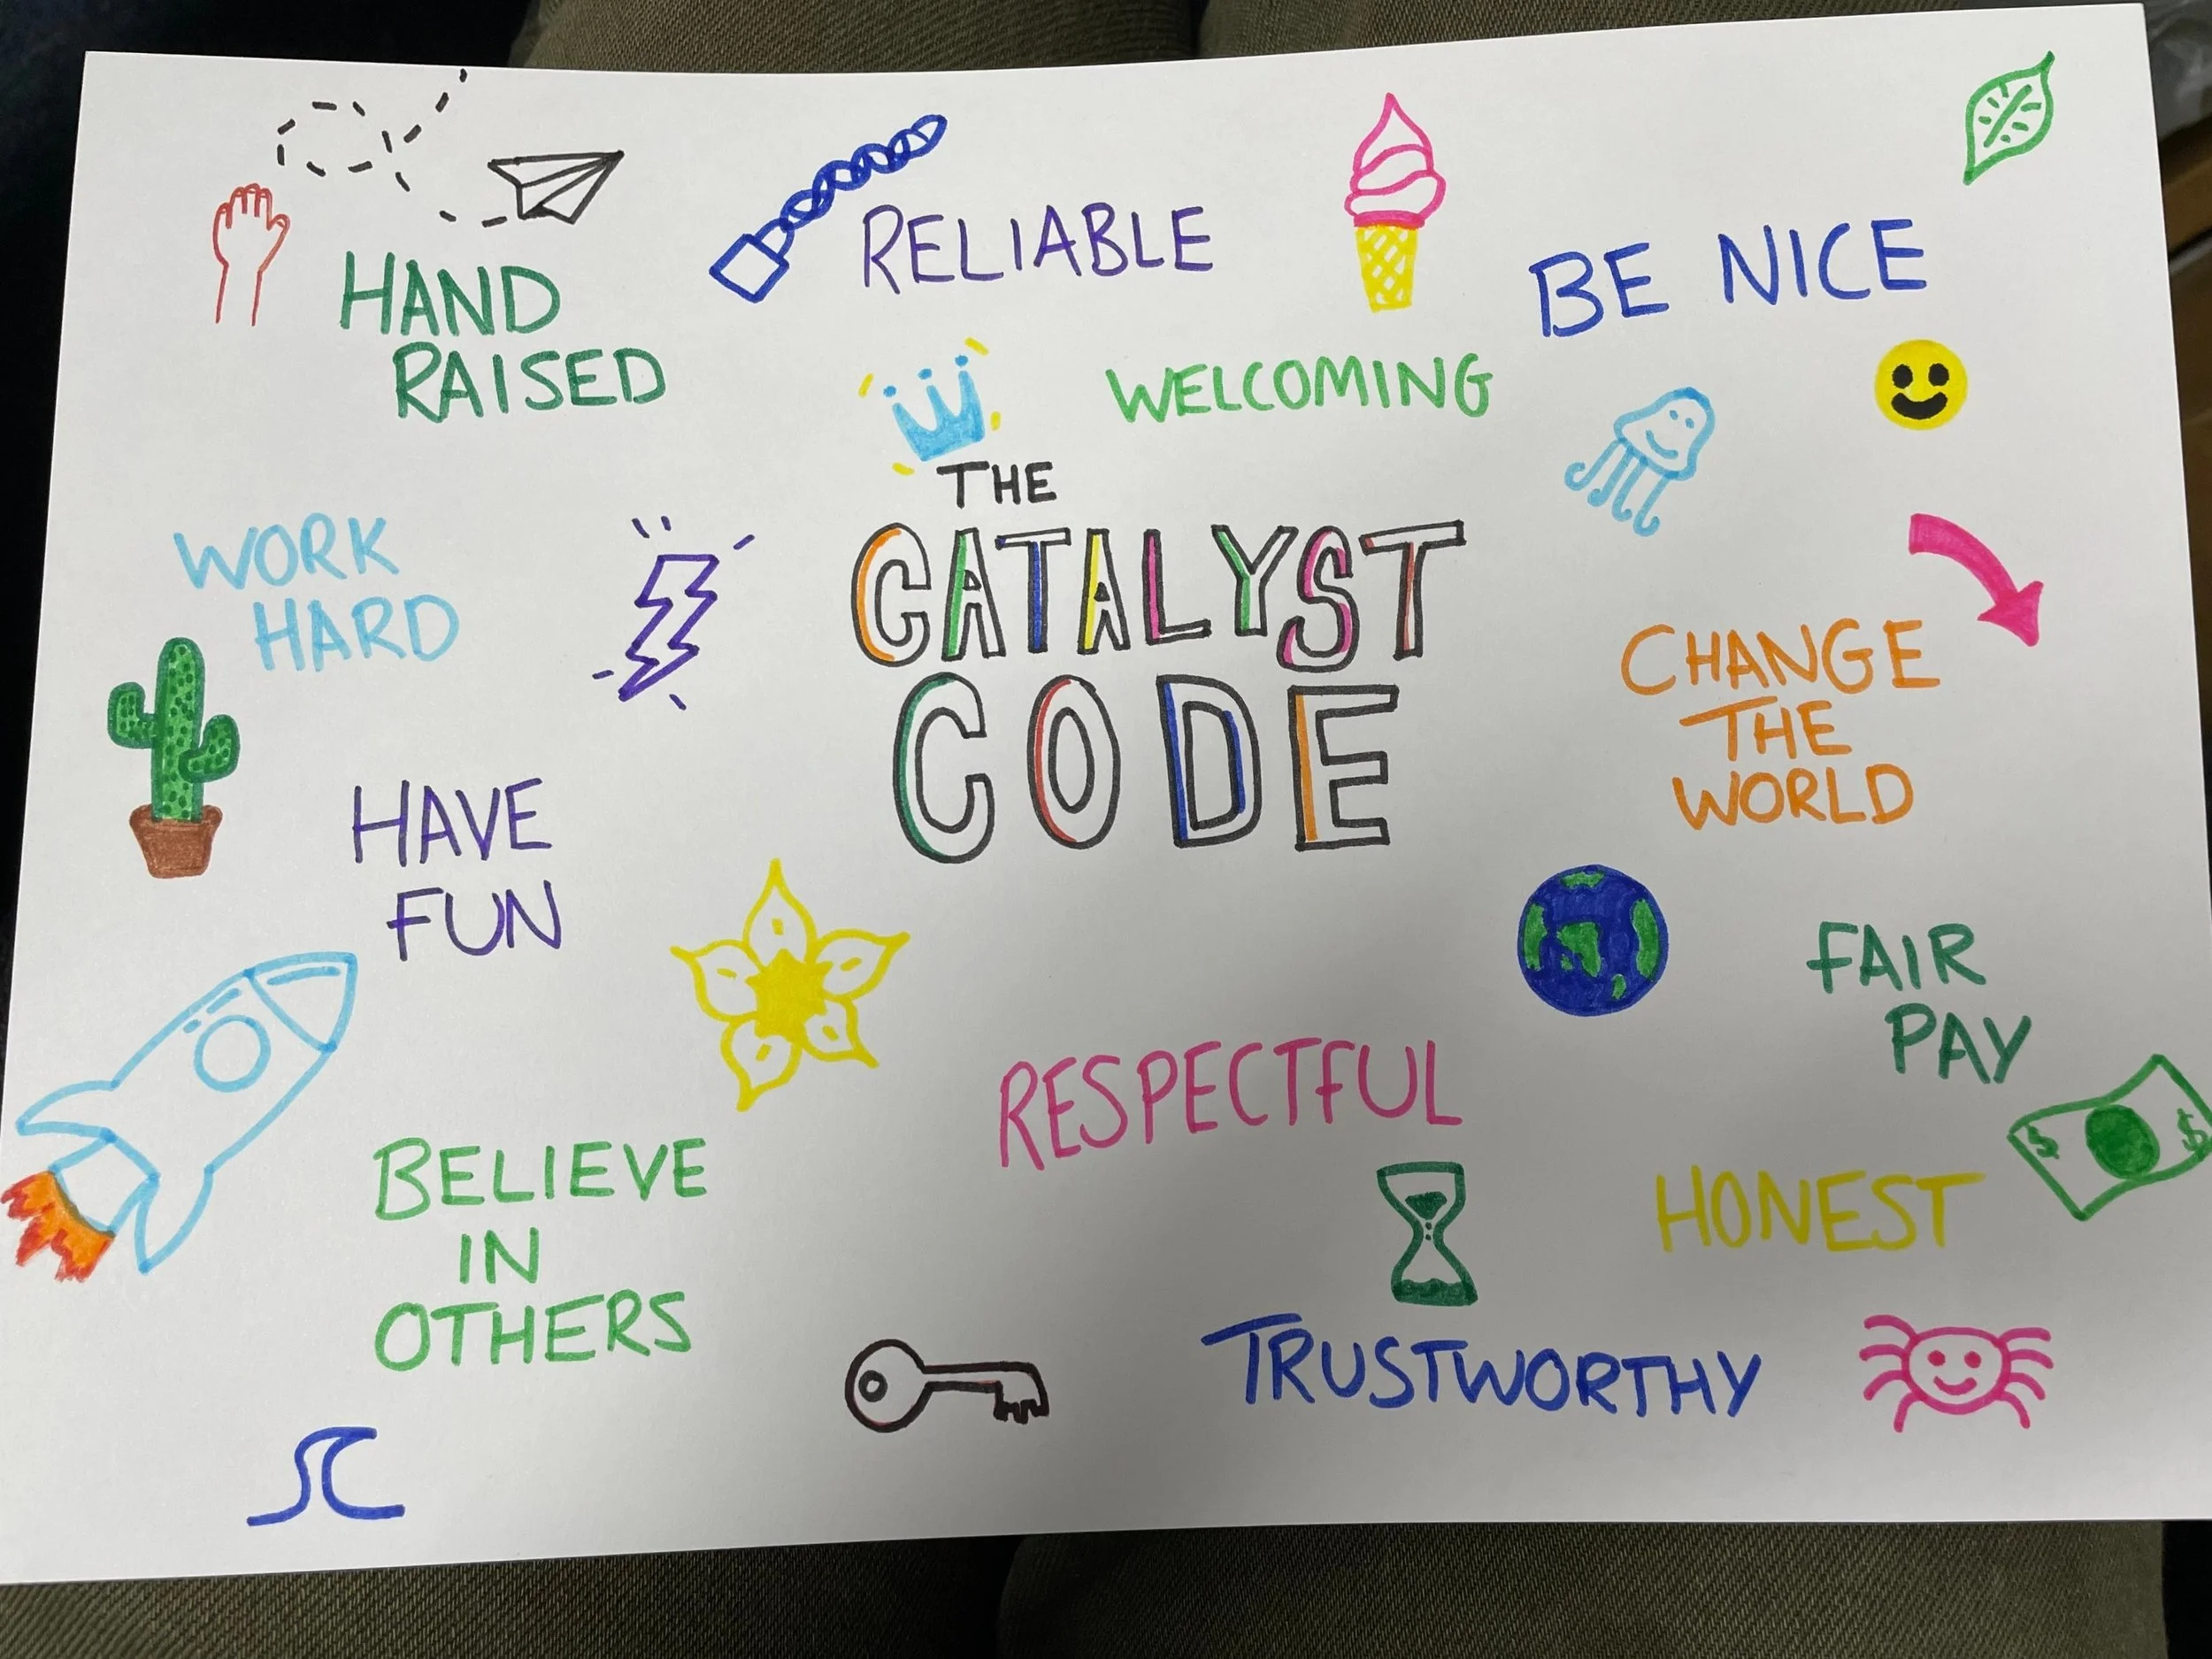 HAND
RAISED
RELIABLE
BE NICE
WELCOMING
THE
CATALYST
CODE
WORK
HARD
CHANGE
THE
WORLD
HAVE
FUN
FAIR
PAY
RESPECTFUL
$ $
HONEST
BELIEVE
IN
OTHERS
TRUSTWORTHY